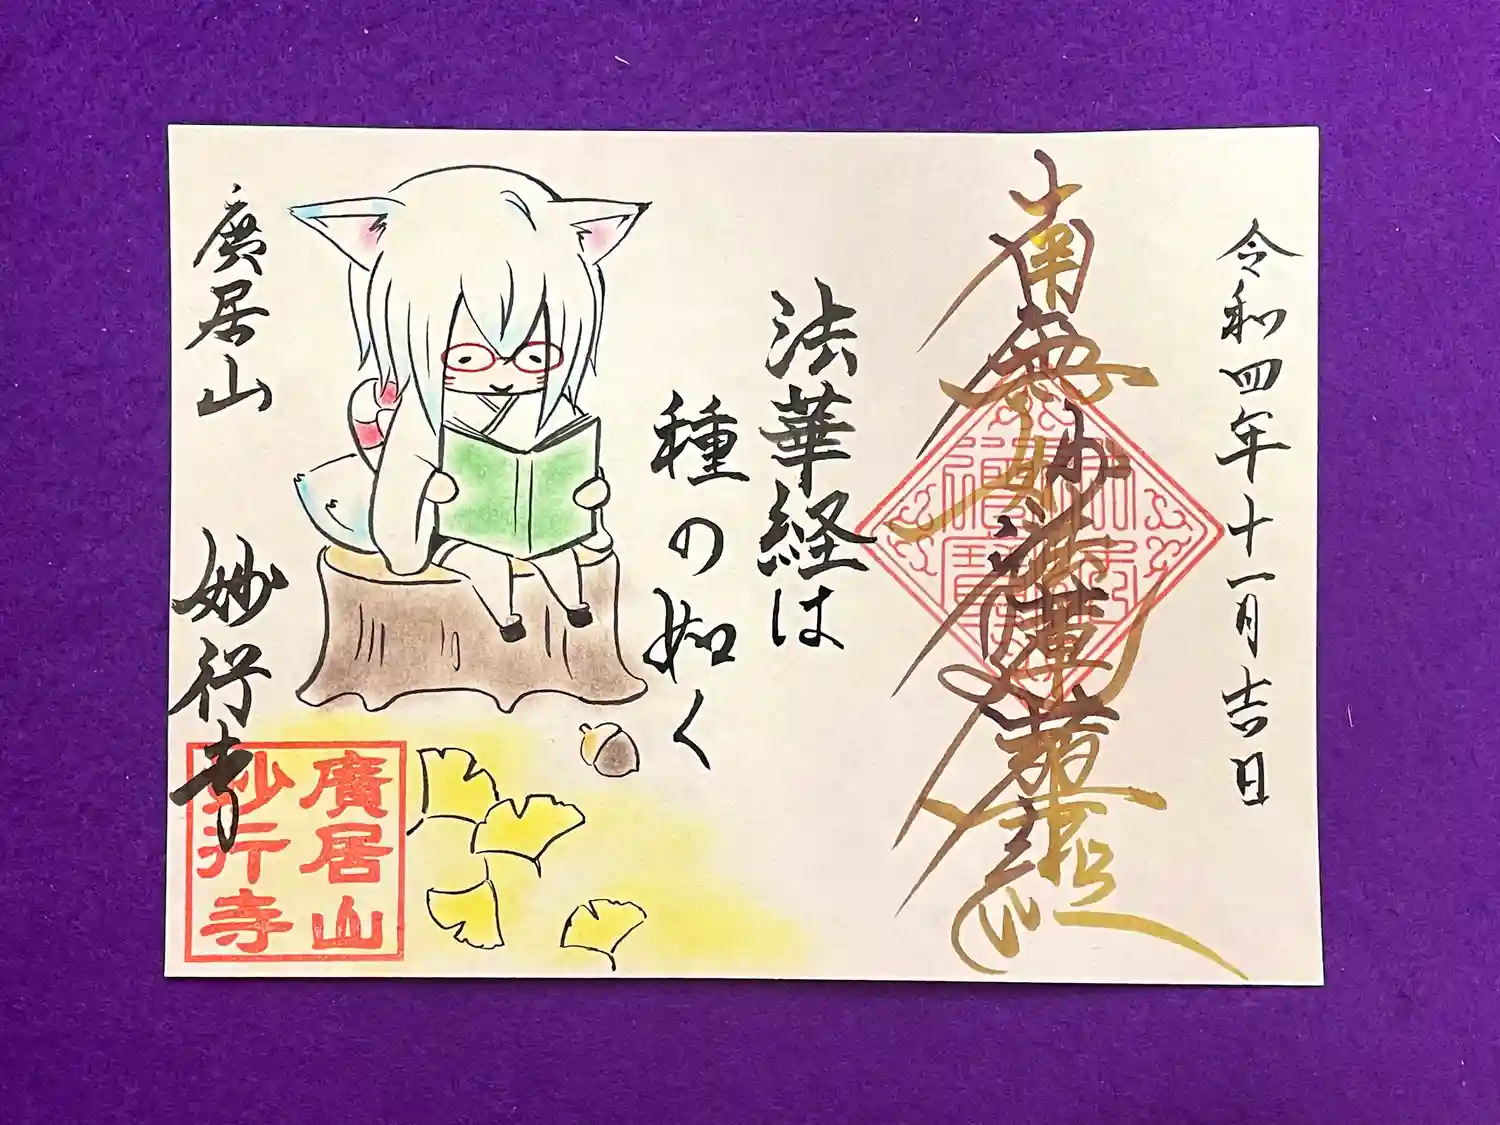 令和四年十一月吉日
南無妙法蓮華経
法華経は
種の如く
廣居山 妙行寺
廣居山
妙行寺